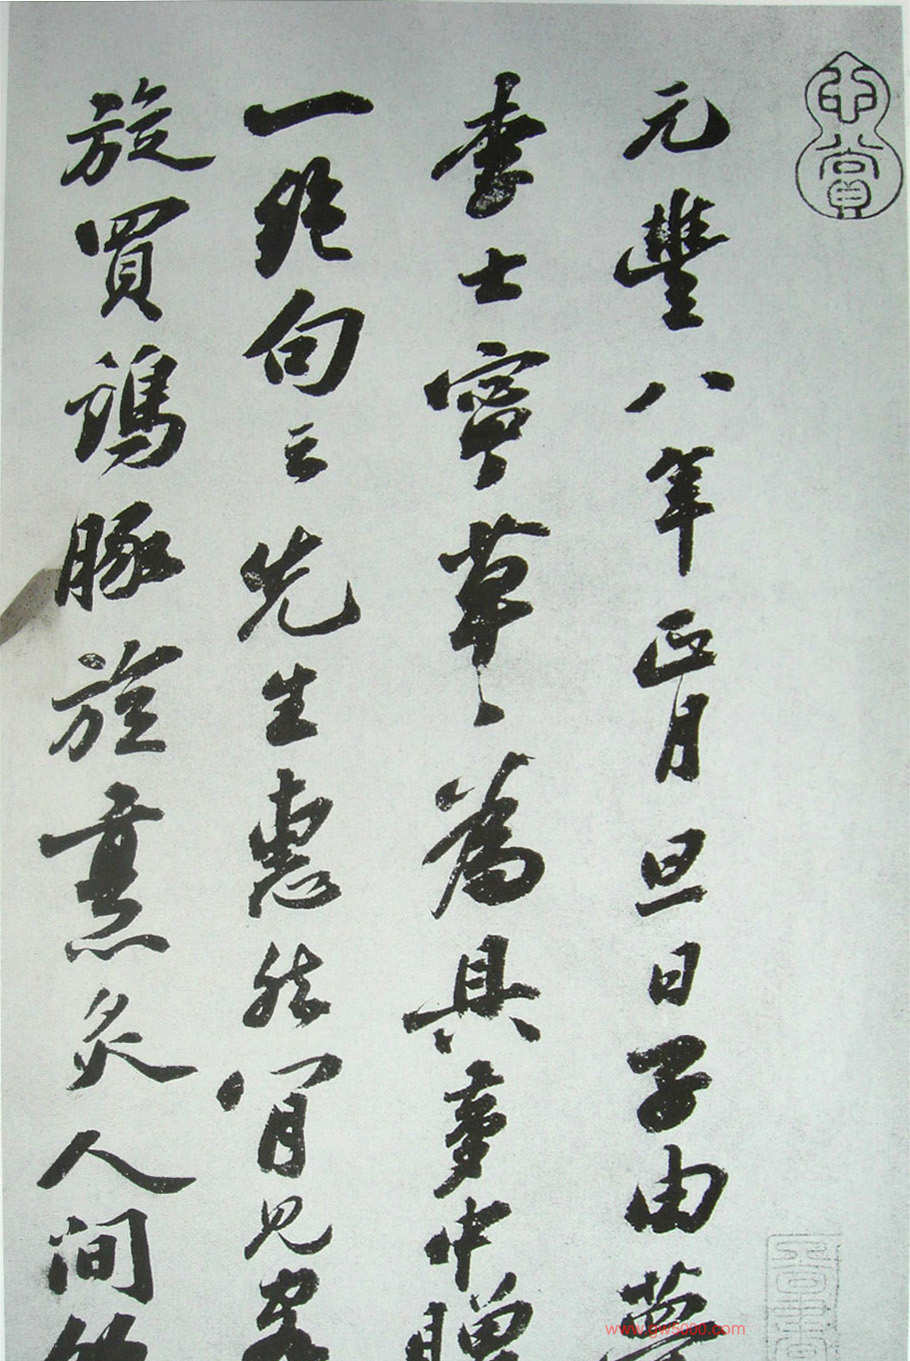 心賞
元豐八年正月旦日子由夢
李士寧草〻為具夢中贈
一絕句云先生惠然肯見客
旋買鷄豚旋烹炙人間
www.gw5000.com